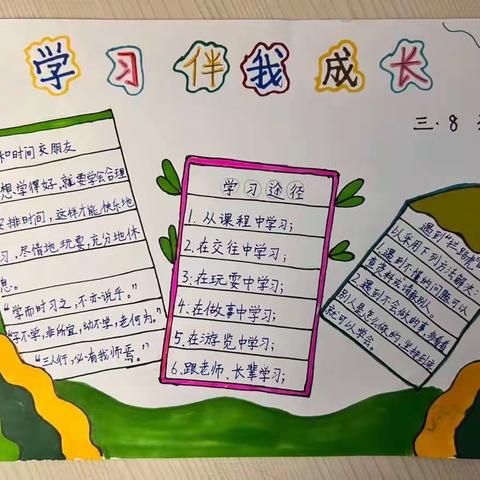 学习伴我成长
三.8
和时间交朋友
想学得好,就要学会合理
安排时间,这样才能快乐地
习,尽情地玩耍,充分地休
息。
“学而时习之,不亦说乎。”
子不学,非所宜,幼不学,老何为。”
“三人行,必有我师焉。”
学习途径
1.从课程中学习;
2.在交往中学习;
3.在玩耍中学习;
4.在做事中学习;
5.在游览中学习;
6.跟老师、长辈学习;
遇到“拦路虎
以采用下列方法解决:
1.遇到不懂的问题可以
查字典或请教别人。
2.遇到不会做的事,多看看
别人是怎么做的,坚持到底
就可以学会。